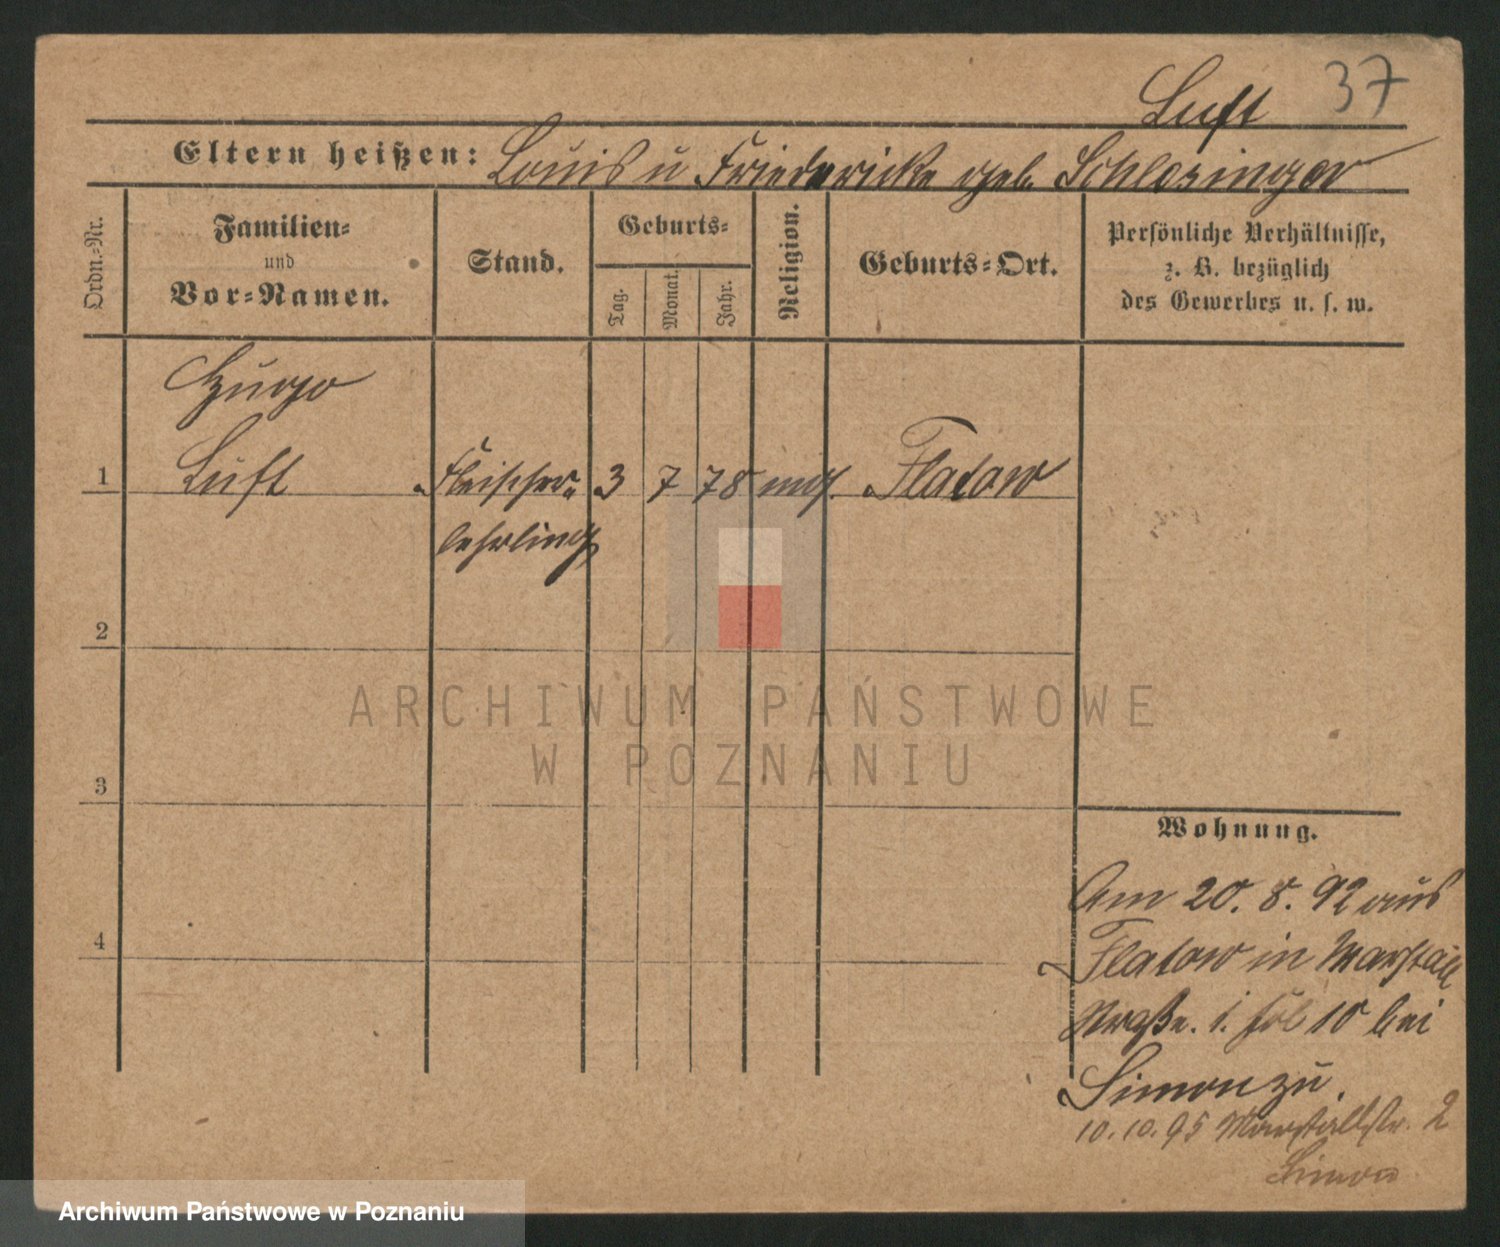 Luft 37
Eltern heißen: Louis u Friedericke geb. Schlesinger
Ordn.-Nr.
Familien-
und
Vor-Namen.
Stand.
Geburts-
Tag.
Monat.
Jahr.
Religion.
Geburts-Ort.
Persönliche Verhältnisse,
z. B. bezüglich
des Gewerbes u. s. w.
Hugo
1 Luft Fleischer 3 7 78 mos. Flatow
lehrling
2
3
4
Wohnung.
Am 20. 8. 92 aus
Flatow in Marstall
Straße. 1. 10 bei
Simon zu.
10.10.95 Marstallstr. 2
Simon
ARCHIWUM PAŃSTWOWE
W POZNANIU
Archiwum Państwowe w Poznaniu